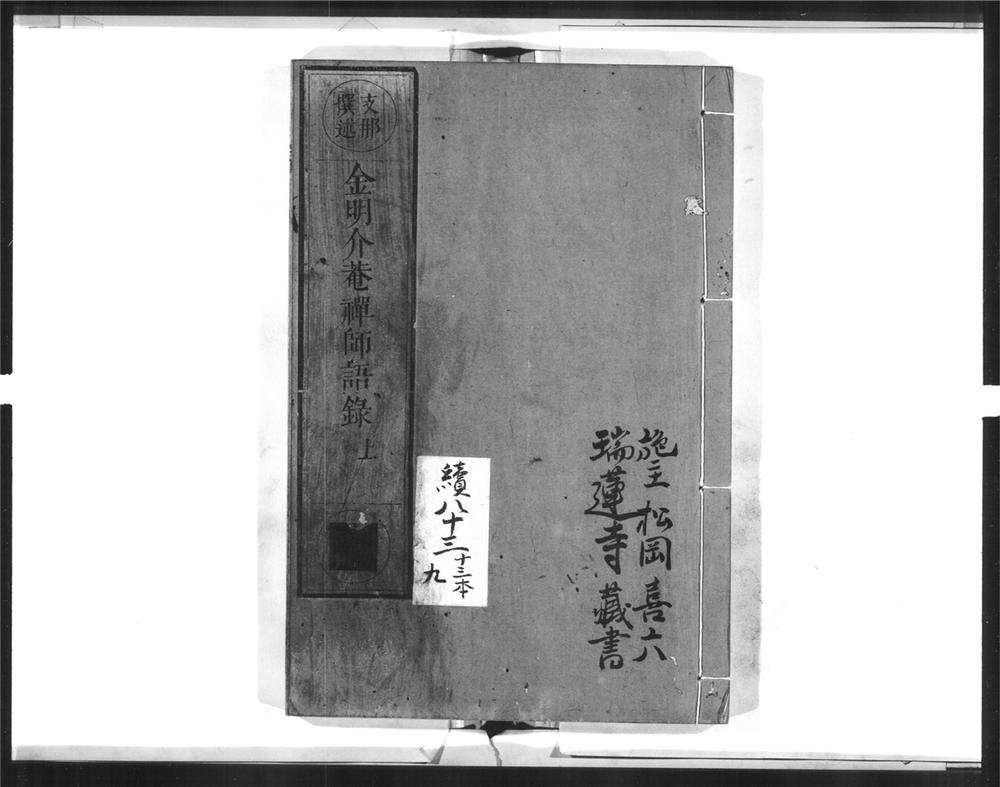 施主 松岡喜六
瑞蓮寺 藏書
續八十三 十三本
九
支那
撰述
金明介菴禪師語錄 上